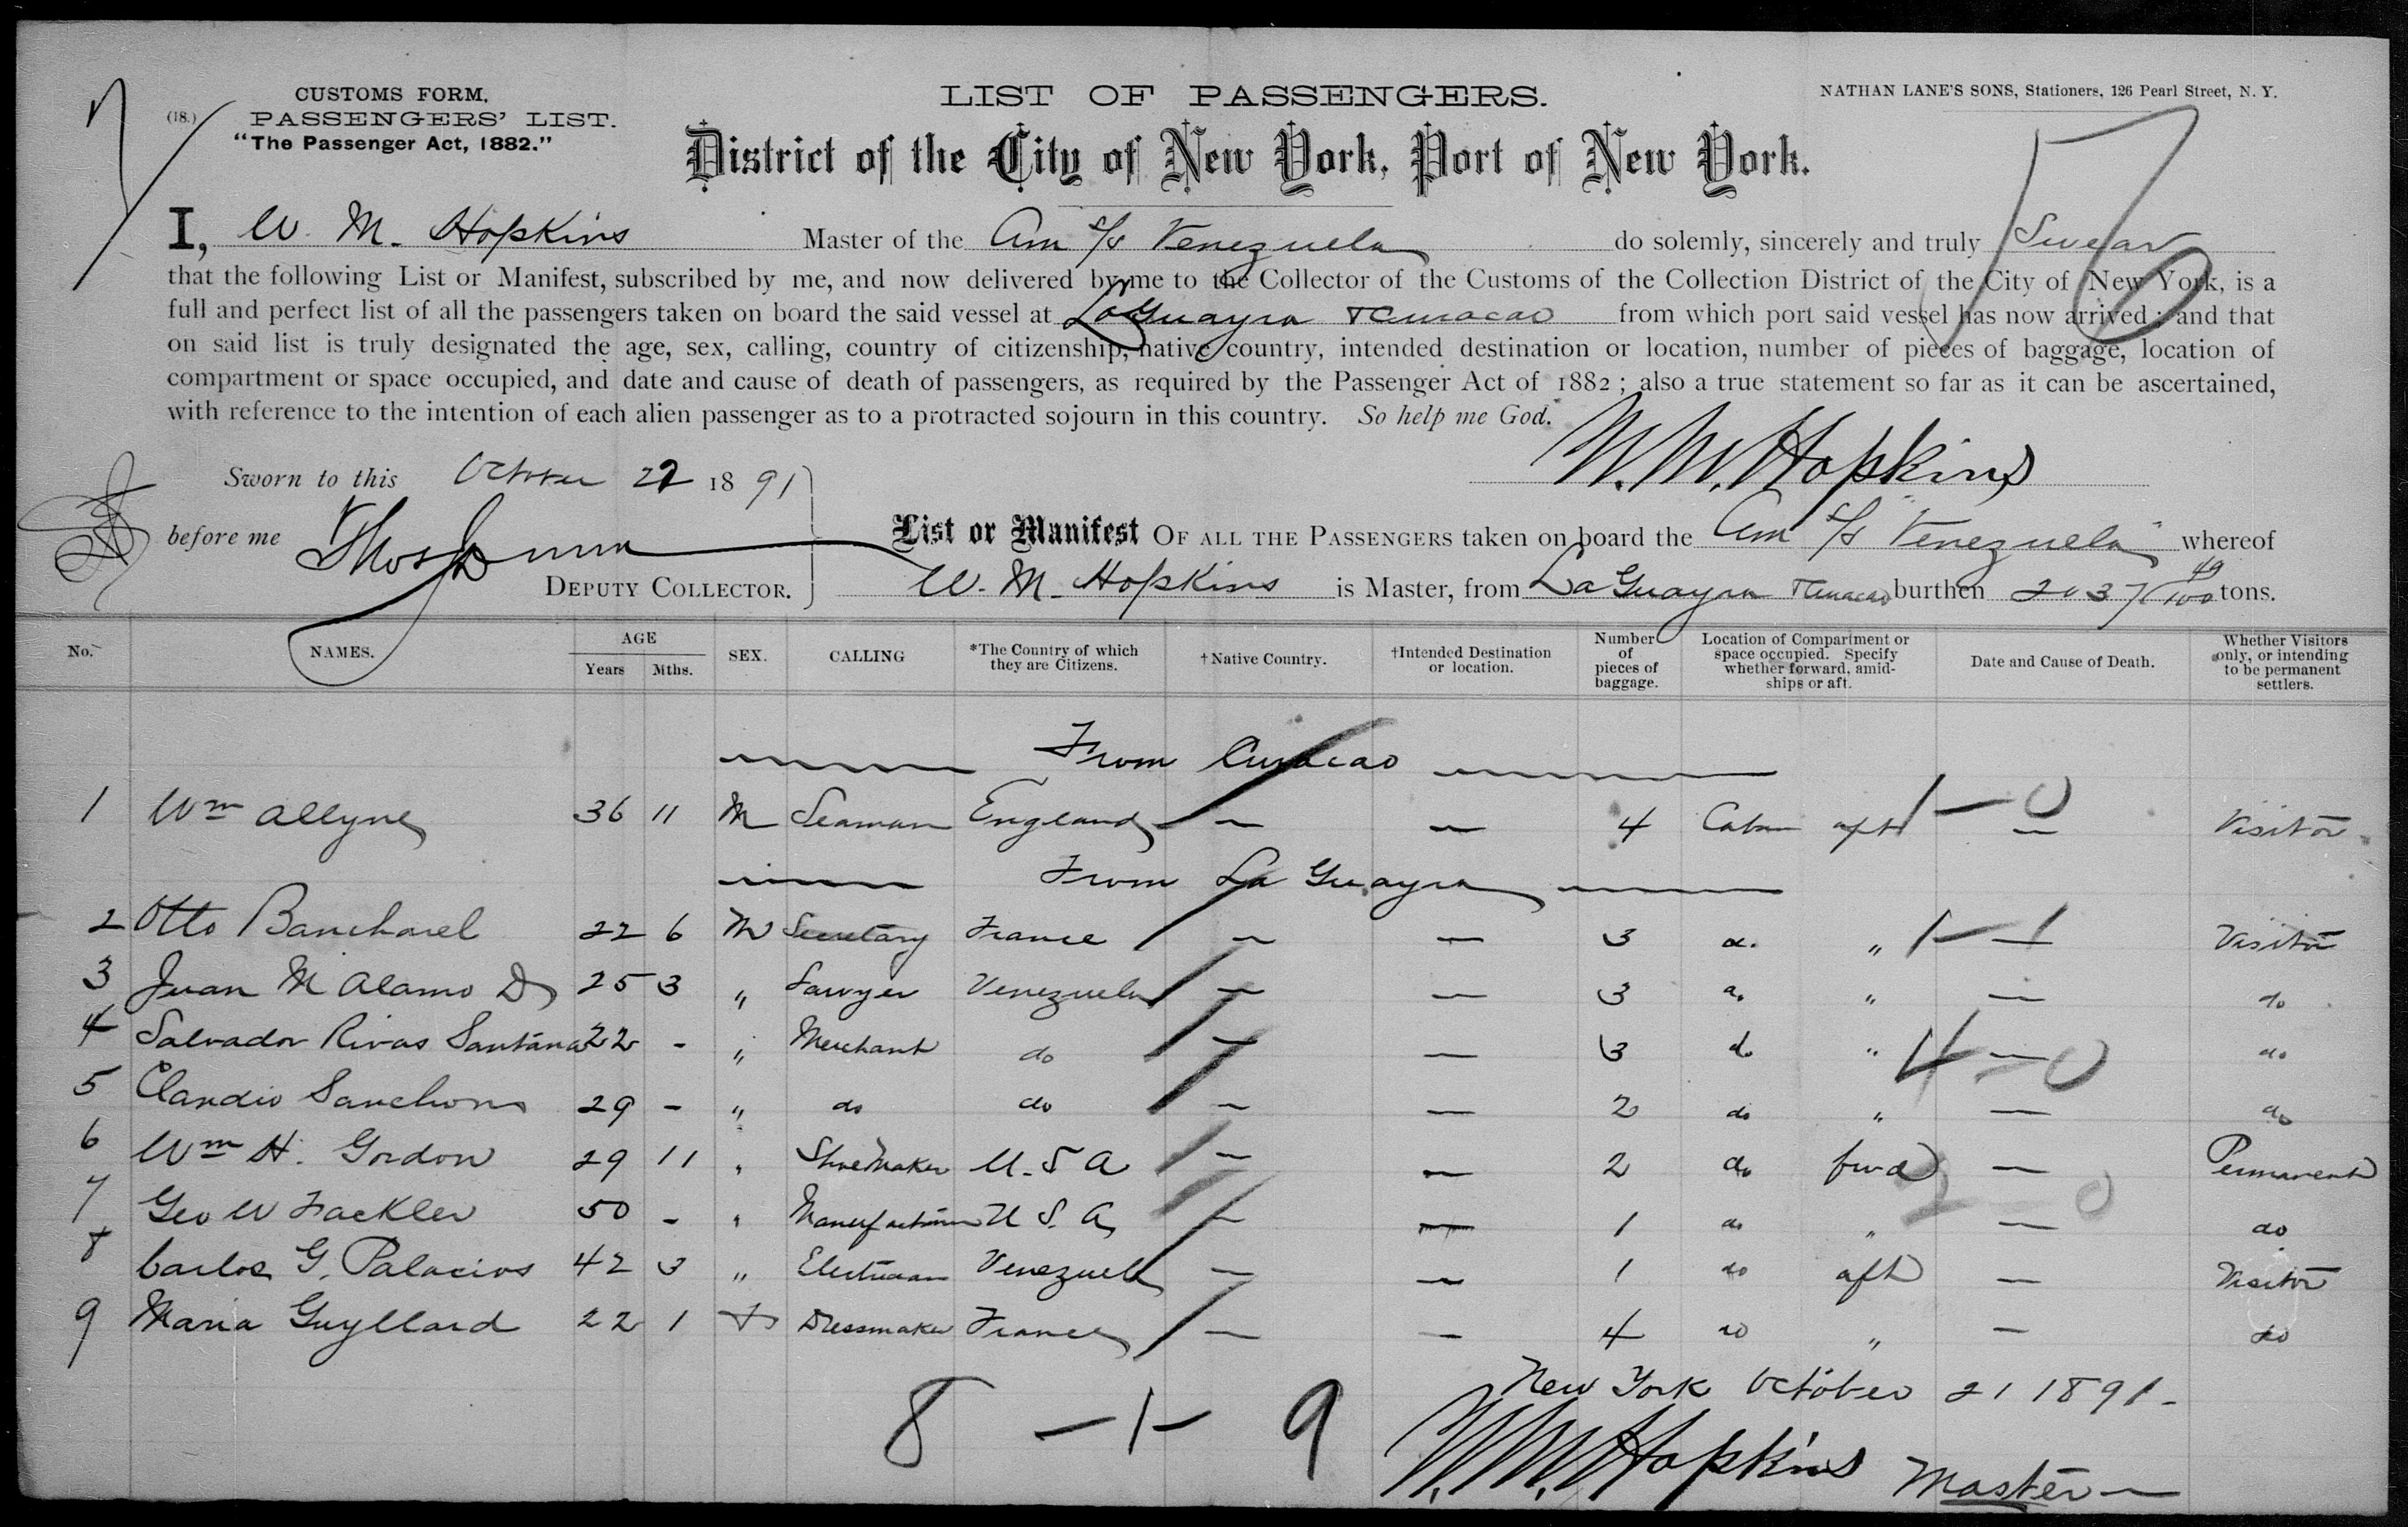 CUSTOMS FORM,
(18.) PASSENGERS' LIST.
"The Passenger Act, 1882."
LIST OF PASSENGERS.
NATHAN LANE'S SONS, Stationers, 126 Pearl Street, N. Y.
District of the City of New York, Port of New York.
76
I, W. M. Hopkins Master of the Am S/S Venezuela do solemnly, sincerely and truly Swear
that the following List or Manifest, subscribed by me, and now delivered by me to the Collector of the Customs of the Collection District of the City of New York, is a
full and perfect list of all the passengers taken on board the said vessel at La Guayra + Curacao from which port said vessel has now arrived; and that
on said list is truly designated the age, sex, calling, country of citizenship, native country, intended destination or location, number of pieces of baggage, location of
compartment or space occupied, and date and cause of death of passengers, as required by the Passenger Act of 1882; also a true statement so far as it can be ascertained,
with reference to the intention of each alien passenger as to a protracted sojourn in this country. So help me God.
W. M. Hopkins
Sworn to this October 22 1891
before me Thos
DEPUTY COLLECTOR.
List or Manifest OF ALL THE PASSENGERS taken on board the Am S/S Venezuela whereof
W. M. Hopkins is Master, from La Guayra + Curacao burthen 2037 49/100 tons.
No. NAMES. AGE Years Mths. SEX. CALLING *The Country of which they are Citizens. †Native Country. †Intended Destination or location. Number of pieces of baggage. Location of Compartment or space occupied. Specify whether forward, amidships or aft. Date and Cause of Death. Whether Visitors only, or intending to be permanent settlers.
From Curacao
1 Wm Allyne 36 11 M Seaman England — — 4 Cabin aft — Visitor
1 — 0
From La Guayra
2 Otto Bancharel 22 6 M Secretary France — — 3 do " — Visitor
1 — 1
3 Juan M Alamo D 25 3 " Lawyer Venezuela — — 3 do " — do
4 Salvador Rivas Santana 22 - " Merchant do — — 3 do " — do
4 — 0
5 Claudio Sanchons 29 - " do do — — 2 do " — do
6 Wm H. Gordon 29 11 " Shoemaker U. S A — — 2 do fwd — Permanent
2 — 0
7 Geo W Fackler 50 - " Manufacturer U S. A — — 1 do " — do
8 Carlos G. Palacios 42 3 " Electrician Venezuela — — 1 do aft — Visitor
9 Maria Guyllard 22 1 F Dressmaker France — — 4 do " — do
New York October 21 1891 -
8 — 1 — 9
W. M. Hopkins Master